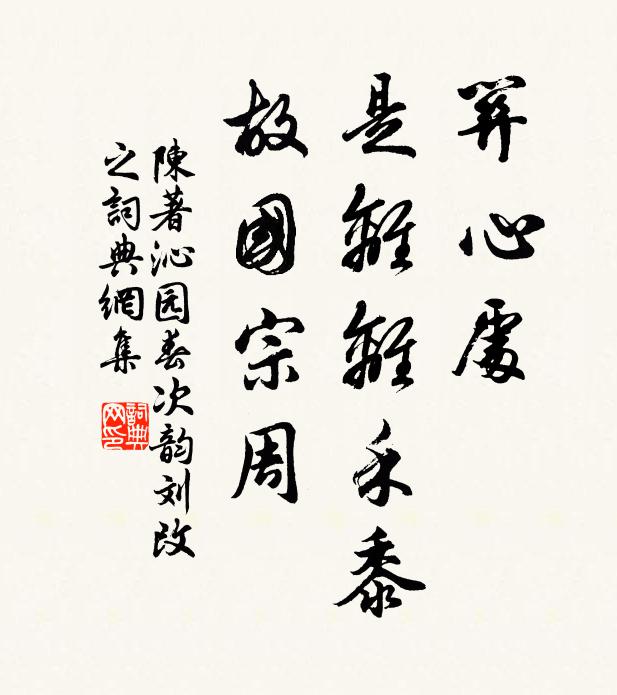 關心處
是離離禾黍
故國宗周
陳著沁园春次韵刘改
之詞典網集
詞典网印